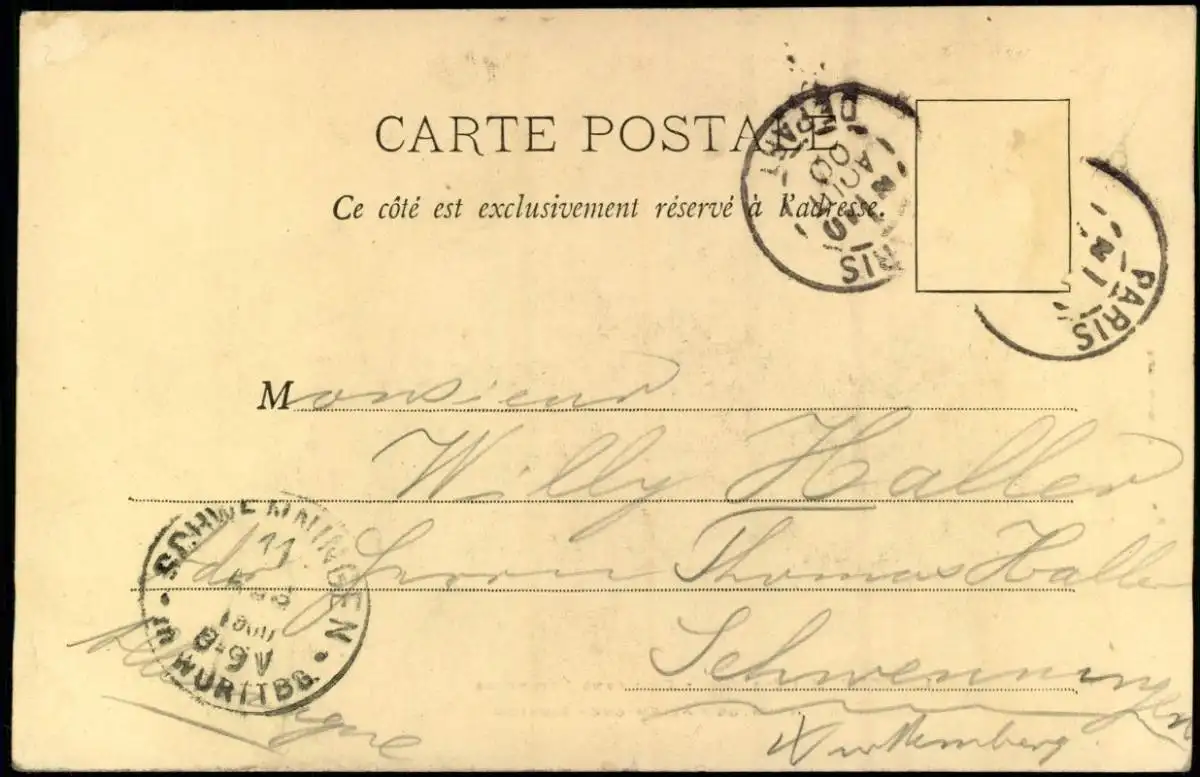 CARTE POSTALE
Ce côté est exclusivement réservé à l'adresse.
DEPART
PARIS
PARIS
Monsieur
Willy Haller
Herrn Thomas Haller
Schwenningen
Württemberg
SCHWENNINGEN
11
in WÜRTTBG.